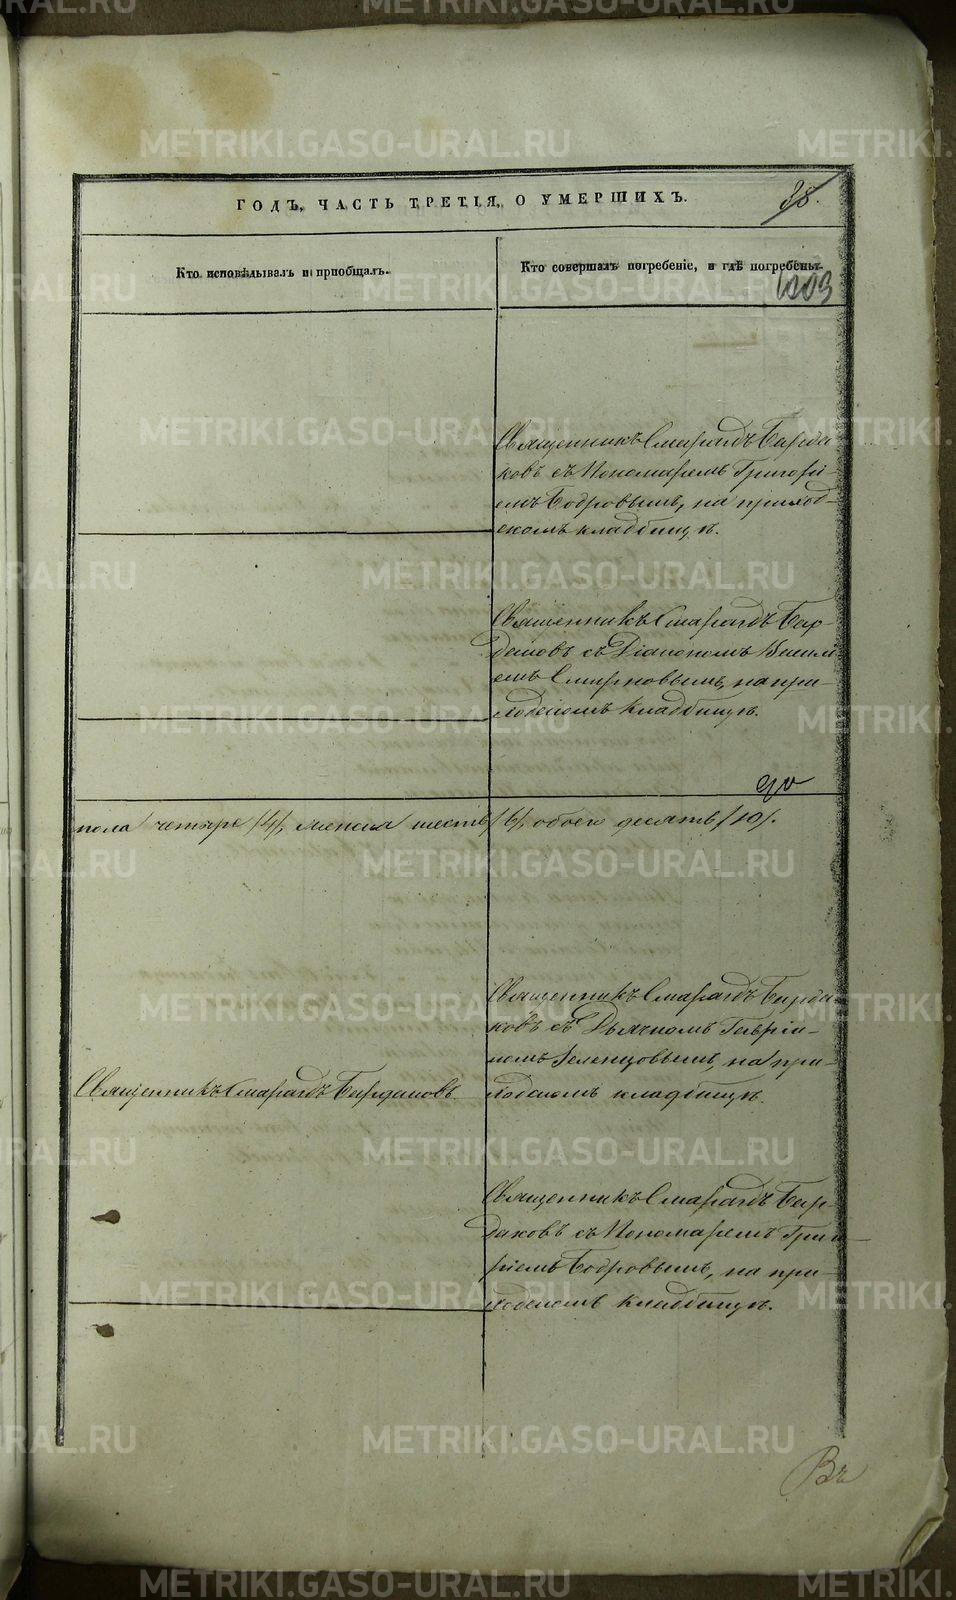 ГОДЪ, ЧАСТЬ ТРЕТІЯ, О УМЕРШИХЪ.
38.
Кто исповѣдывалъ и пріобщалъ.
Кто совершалъ погребеніе, и гдѣ погребены.
1203
Священникъ Смарагдъ Барда
ковъ съ Пономаремъ Григорі-
емъ Бодровымъ, на приход-
скомъ кладбищѣ.
Священникъ Смарагдъ Бар-
даковъ съ Діакономъ Васил
емъ Смирновымъ, на при-
ходскомъ кладбищѣ.
пола четыре /4/, женска шесть /6/, обоего десять /10/.
Священникъ Смарагдъ Барда
ковъ съ Дьячкомъ Гавріи-
ломъ Зеленцовымъ, на при-
ходскомъ кладбищѣ.
Священникъ Смарагдъ Бардаковъ.
Священникъ Смарагдъ Бар-
даковъ съ Пономаремъ Григо-
ріемъ Бодровымъ, на при-
ходскомъ кладбищѣ.
Въ
METRIKI.GASO-URAL.RU